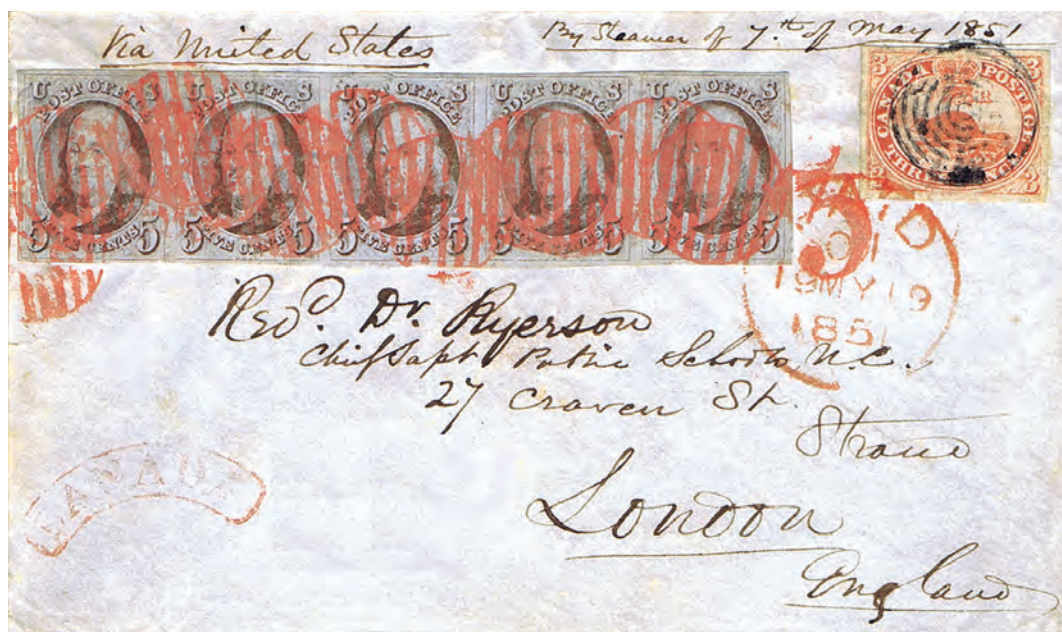 Via United States
By Steamer of 7.th of May 1851
U S
POST OFFICE
5 FIVE CENTS 5
U S
POST OFFICE
5 FIVE CENTS 5
U S
POST OFFICE
5 FIVE CENTS 5
U S
POST OFFICE
5 FIVE CENTS 5
U S
POST OFFICE
5 FIVE CENTS 5
3 3
CANADA POSTAGE
THREE
3 3
PAID
19 MY 19
1851
Revd. Dr. Ryerson
Chief Supt. Public Schools
27 Craven St.
Strand
London
England
CANADA